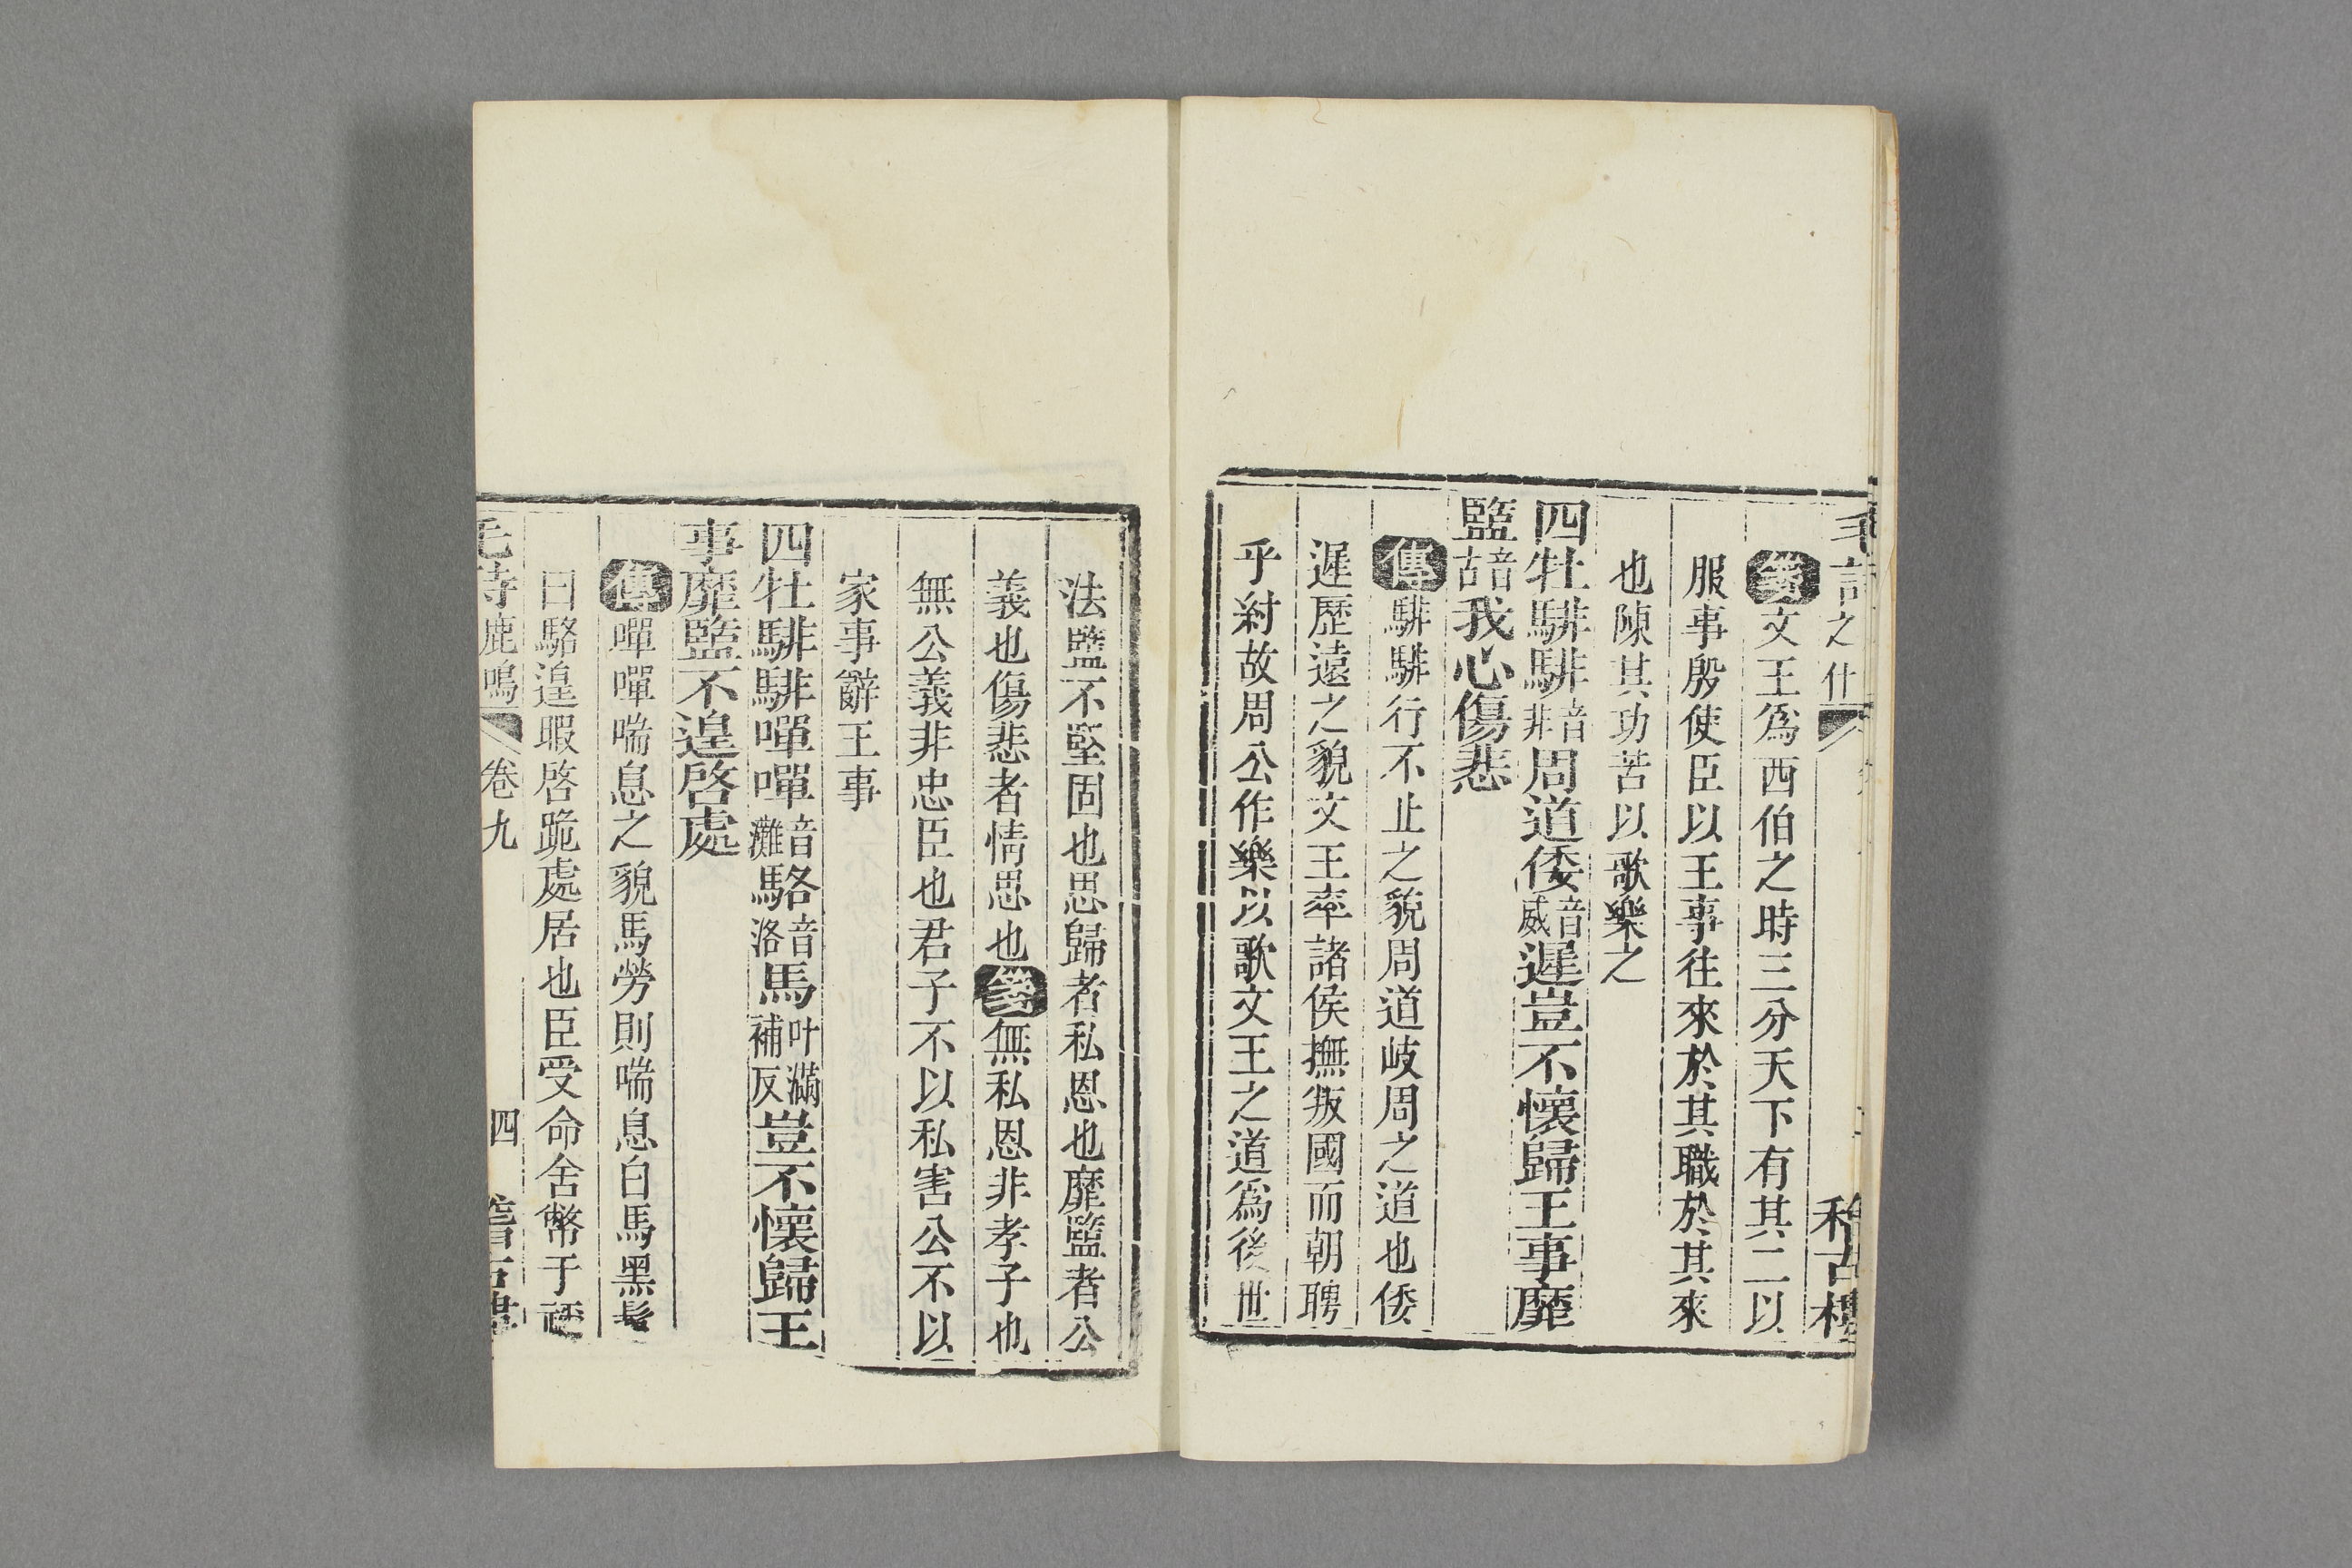 毛詩之什 稽古樓
箋文王爲西伯之時三分天下有其二以
服事殷使臣以王事往來於其職於其來
也陳其功苦以歌樂之
四牡騑騑音非周道倭音威遲豈不懷歸王事靡
盬音古我心傷悲
傳騑騑行不止之貌周道岐周之道也倭
遲歷遠之貌文王率諸侯撫叛國而朝聘
乎紂故周公作樂以歌文王之道爲後世
法盬不堅固也思歸者私恩也靡盬者公
義也傷悲者情思也箋無私恩非孝子也
無公義非忠臣也君子不以私害公不以
家事辭王事
四牡騑騑嘽嘽音灘駱音洛馬叶滿補反豈不懷歸王
事靡盬不遑啓處
傳嘽嘽喘息之貌馬勞則喘息白馬黑髦
曰駱遑暇啓跪處居也臣受命舍幣于禰
毛詩鹿鳴 卷九 四